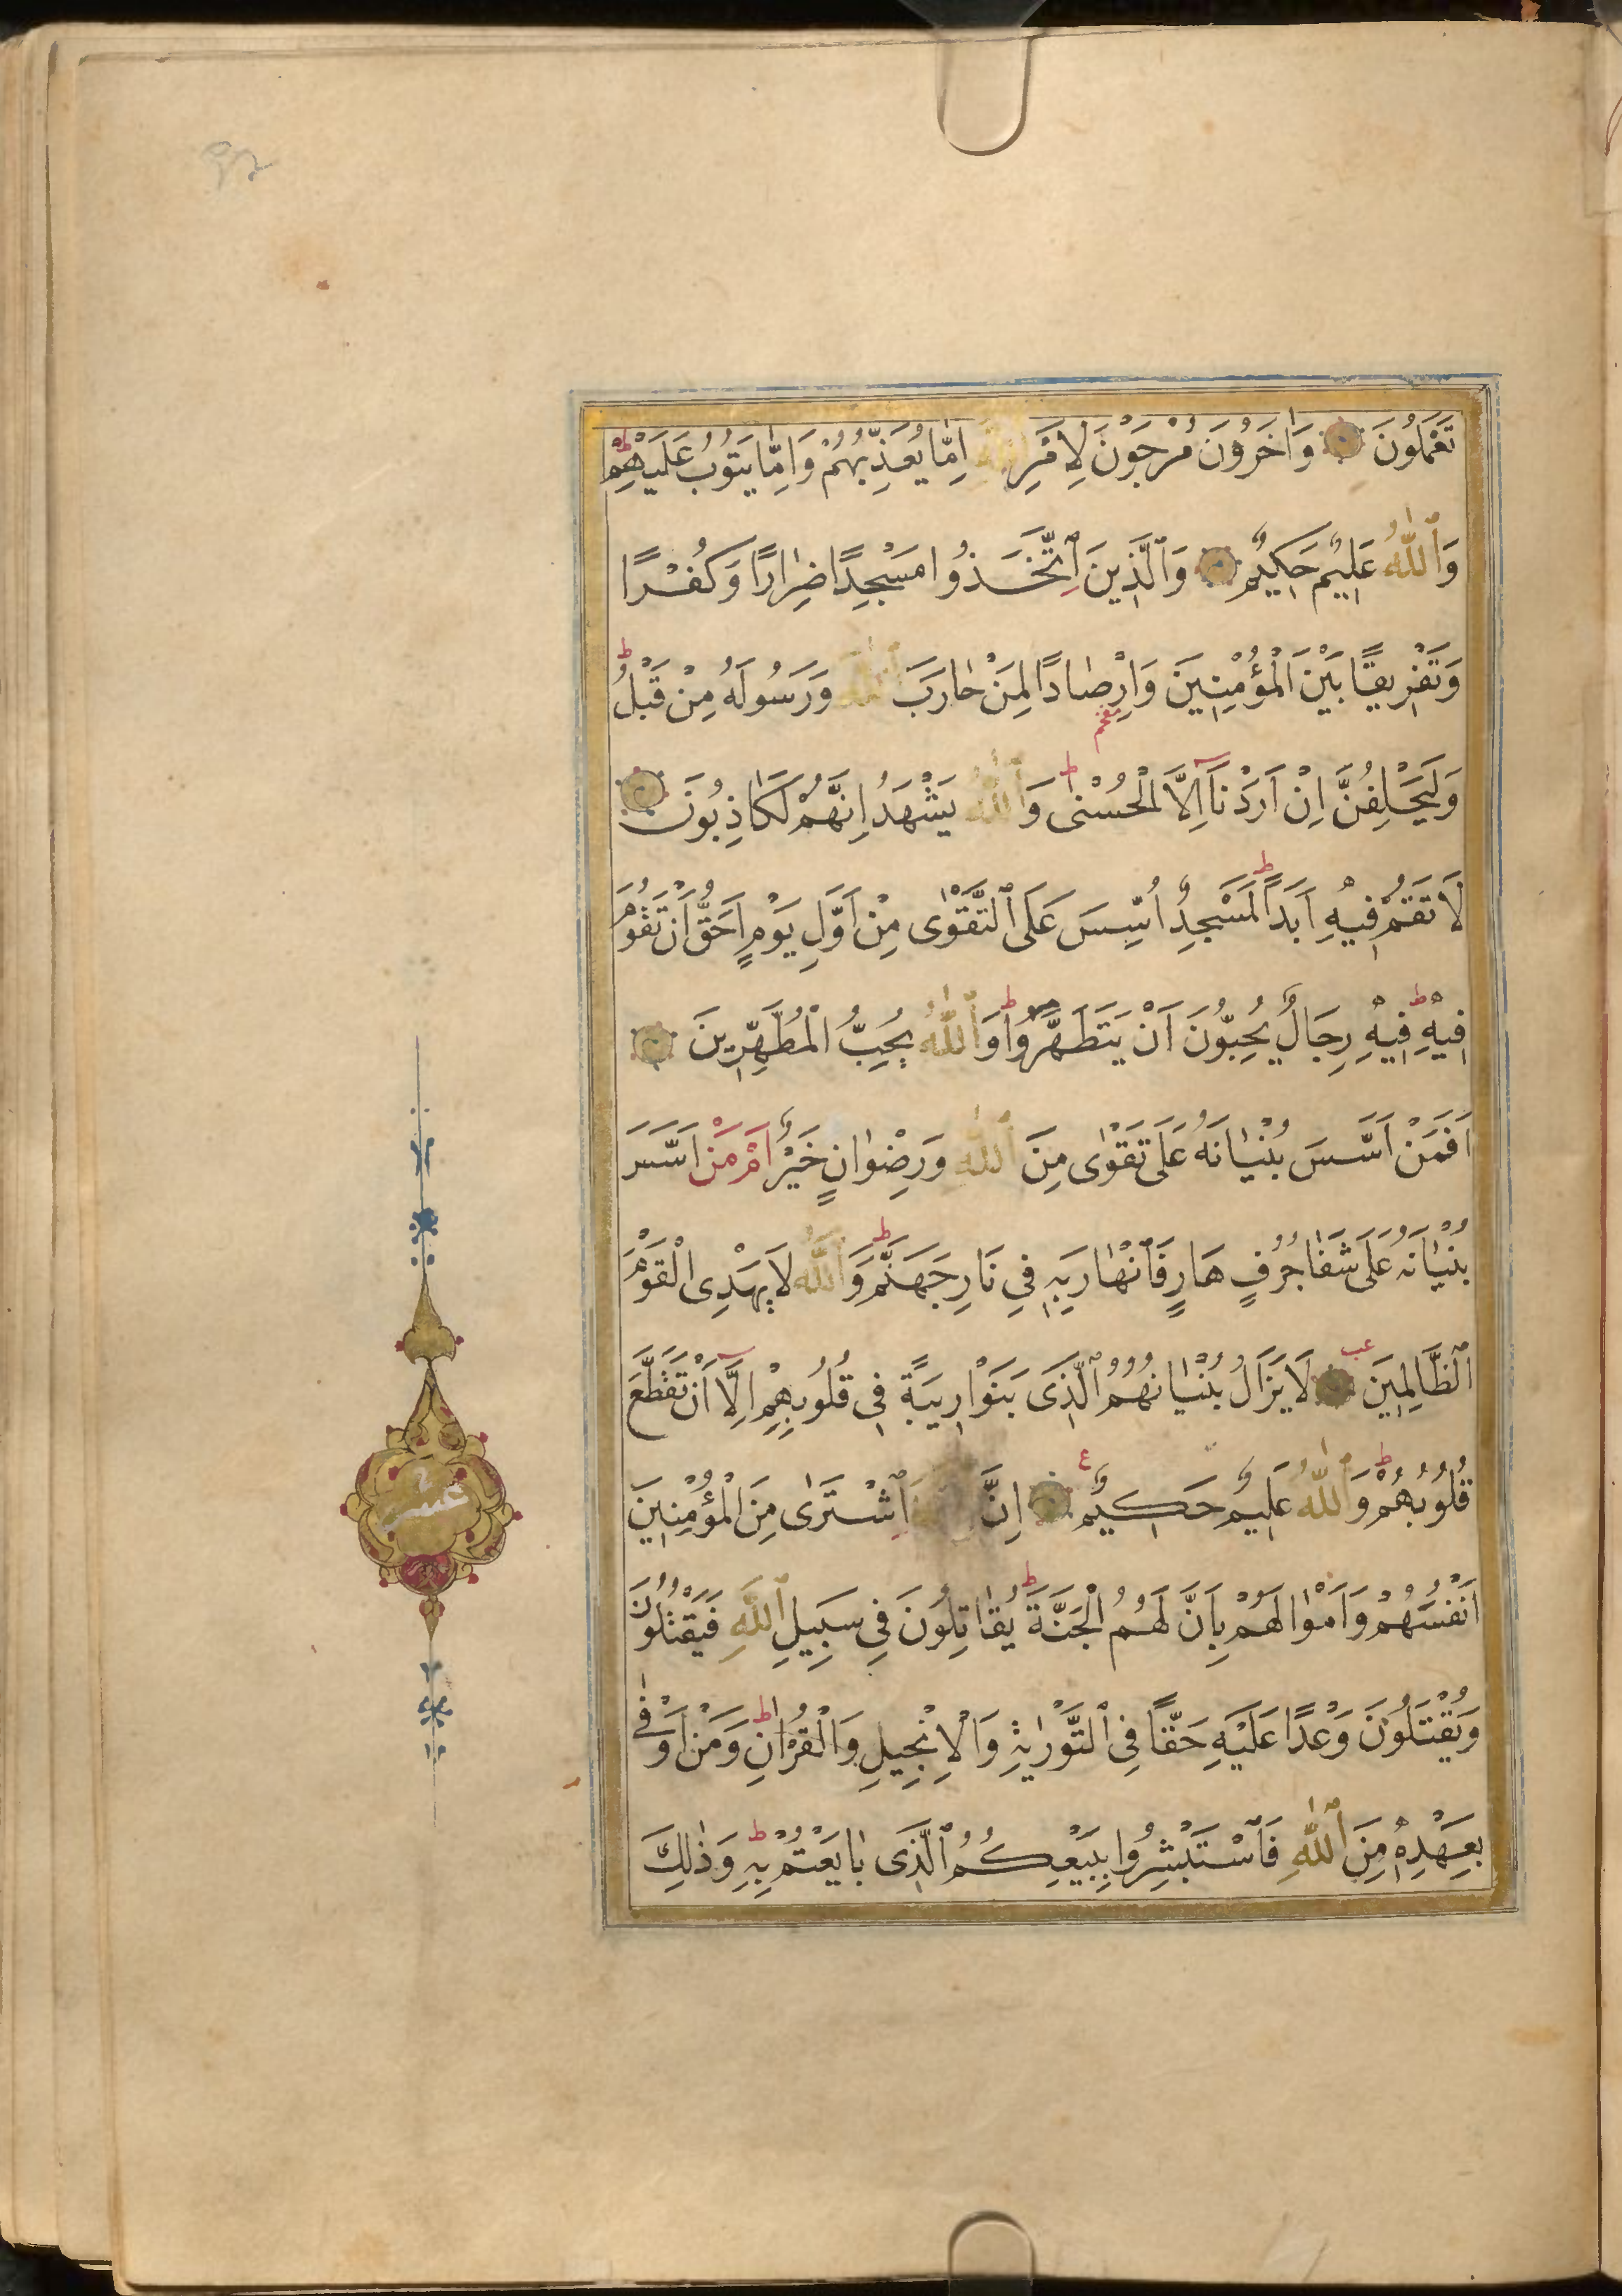 تَعْمَلُونَ وَاٰخَرُونَ مُرْجَوْنَ لِاَمْرِ اللّٰهِ اِمَّا يُعَذِّبُهُمْ وَاِمَّا يَتُوبُ عَلَيْهِمْ ط
وَٱللّٰهُ عَلِيمٌ حَكِيمٌ وَٱلَّذِينَ ٱتَّخَذُوا مَسْجِدًا ضِرَارًا وَكُفْرًا
وَتَفْرِيقًا بَيْنَ الْمُؤْمِنِينَ وَاِرْصَادًا لِمَنْ حَارَبَ ٱللّٰهَ وَرَسُولَهُ مِنْ قَبْلُ ط
وَلَيَحْلِفُنَّ اِنْ اَرَدْنَا اِلَّا الْحُسْنٰى ط وَٱللّٰهُ يَشْهَدُ اِنَّهُمْ لَكَاذِبُونَ
لَا تَقُمْ فِيهِ اَبَدًا ط لَمَسْجِدٌ اُسِّسَ عَلَى ٱلتَّقْوٰى مِنْ اَوَّلِ يَوْمٍ اَحَقُّ اَنْ تَقُومَ
فِيهِ ط فِيهِ رِجَالٌ يُحِبُّونَ اَنْ يَتَطَهَّرُوا ط وَٱللّٰهُ يُحِبُّ الْمُطَّهِّرِينَ
اَفَمَنْ اَسَّسَ بُنْيَانَهُ عَلَى تَقْوٰى مِنَ ٱللّٰهِ وَرِضْوَانٍ خَيْرٌ اَمْ مَنْ اَسَّسَ
بُنْيَانَهُ عَلَى شَفَا جُرُفٍ هَارٍ فَٱنْهَارَ بِهِ فِي نَارِ جَهَنَّمَ ط وَٱللّٰهُ لَا يَهْدِى الْقَوْمَ
ٱلظَّالِمِينَ عب لَا يَزَالُ بُنْيَانُهُمُ ٱلَّذِى بَنَوْا رِيبَةً فِى قُلُوبِهِمْ اِلَّا اَنْ تَقَطَّعَ
قُلُوبُهُمْ ط وَٱللّٰهُ عَلِيمٌ حَكِيمٌ ع اِنَّ ٱللّٰهَ ٱشْتَرَى مِنَ الْمُؤْمِنِينَ
اَنْفُسَهُمْ وَاَمْوَالَهُمْ بِاَنَّ لَهُمُ الْجَنَّةَ ط يُقَاتِلُونَ فِى سَبِيلِ ٱللّٰهِ فَيَقْتُلُونَ
وَيُقْتَلُونَ وَعْدًا عَلَيْهِ حَقًّا فِى ٱلتَّوْرٰيةِ وَالْاِنْجِيلِ وَالْقُرْاٰنِ ط وَمَنْ اَوْفٰى
بِعَهْدِهِ مِنَ ٱللّٰهِ فَٱسْتَبْشِرُوا بِبَيْعِكُمُ ٱلَّذِى بَايَعْتُمْ بِهِ ط وَذٰلِكَ
عشر